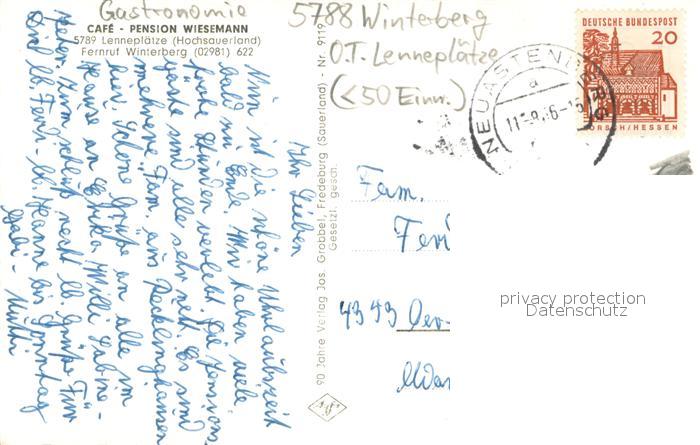 Gastronomie
CAFÉ - PENSION WIESEMANN
5789 Lenneplätze (Hochsauerland)
Fernruf Winterberg (02981) 622
5788 Winterberg
O.T. Lenneplätze
(<50 Einw.)
DEUTSCHE BUNDESPOST
20
LORSCH/HESSEN
NEUASTENBERG
a
Ihr Lieben
Nun ist die schöne Urlaubszeit
bald zu Ende. Wir haben viele
schöne Stunden verlebt. Die Pensions
gäste sind alle sehr nett. Es sind
mehrere Fam. aus Recklinghausen
hier. Schöne Grüße an alle im
Hause an Erika Willi Sabine
zum Schluß noch lb. Grüße Fur
bis Sonntag
Gabi - Mutti
90 Jahre Verlag Jos. Grobbel, Fredeburg (Sauerland) - Nr. 9119
Gesetzl. gesch.
Fam.
Feri
4353 Oer-
privacy protection
Datenschutz